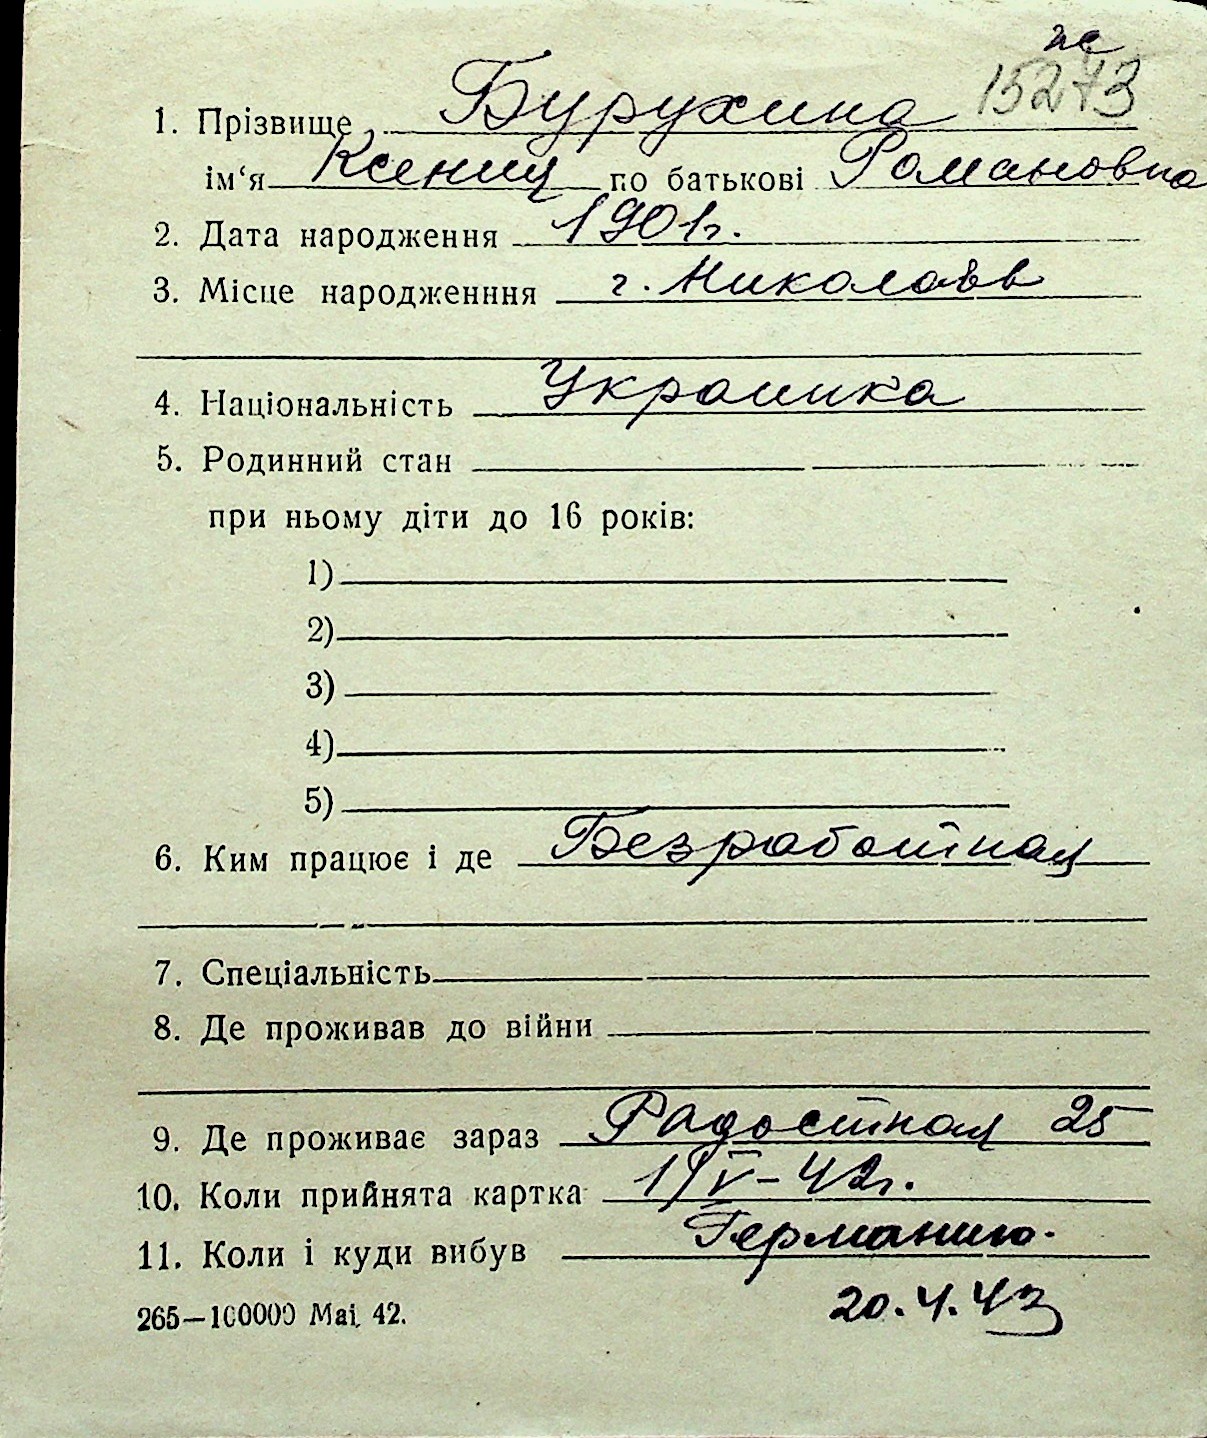 же
15273
1. Прізвище Бурухина
ім‘я Ксения по батькові Романовна
2. Дата народження 1901г.
3. Місце народженння г. Николаев
4. Національність Украинка
5. Родинний стан
при ньому діти до 16 років:
1)
2)
3)
4)
5)
6. Ким працює і де Безработная
7. Спеціальність
8. Де проживав до війни
9. Де проживає зараз Радостная 25
10. Коли прийнята картка 1/V-42г.
11. Коли і куди вибув Германию.
265—100000 Mai. 42. 20.4.43